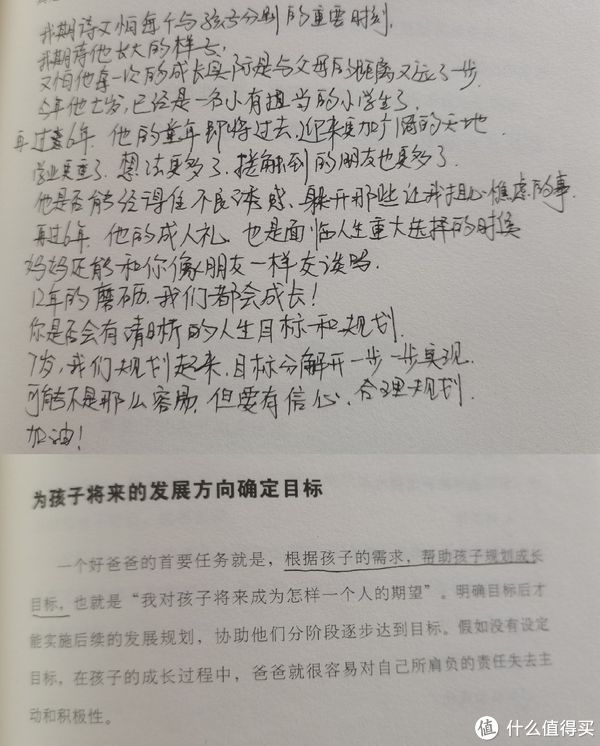 我期待又怕每个与孩子分别的重要时刻.
我期待他长大的样子.
又怕他每一次的成长实际是与父母的距离又远了一步.
今年他七岁,已经是一名小有担当的小学生了.
再过6年.他的童年即将过去,迎来更加广阔的天地
学业更重了.想法更多了.接触到的朋友也更多了.
他是否能经得住不良诱惑、躲开那些让我担心焦虑的事.
再过6年.他的成人礼.也是面临人生重大选择的时候
妈妈还能和你像朋友一样交谈吗.
12年的磨砺.我们都会成长!
你是否会有清晰的人生目标和规划.
7岁,我们规划起来,目标分解开一步一步实现.
可能不是那么容易,但要有信心、合理规划.
加油!
为孩子将来的发展方向确定目标
一个好爸爸的首要任务就是,根据孩子的需求,帮助孩子规划成长
目标,也就是“我对孩子将来成为怎样一个人的期望”。明确目标后才
能实施后续的发展规划,协助他们分阶段逐步达到目标。假如没有设定
目标,在孩子的成长过程中,爸爸就很容易对自己所肩负的责任失去主
动和积极性。
值 什么值得买